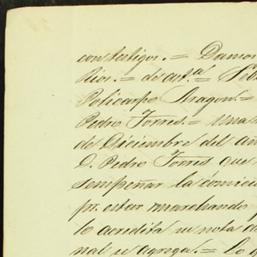 con testigos.= Damos
Rios.= de asta.= Feli
Policarpo Aragon.=
Pedro Torres.= Una
de Diciembre del añ
D. Pedro Torres que
sempeñar la comici
pr. estar marchando
lo acredita su nota d
nal se agrega.= lo q